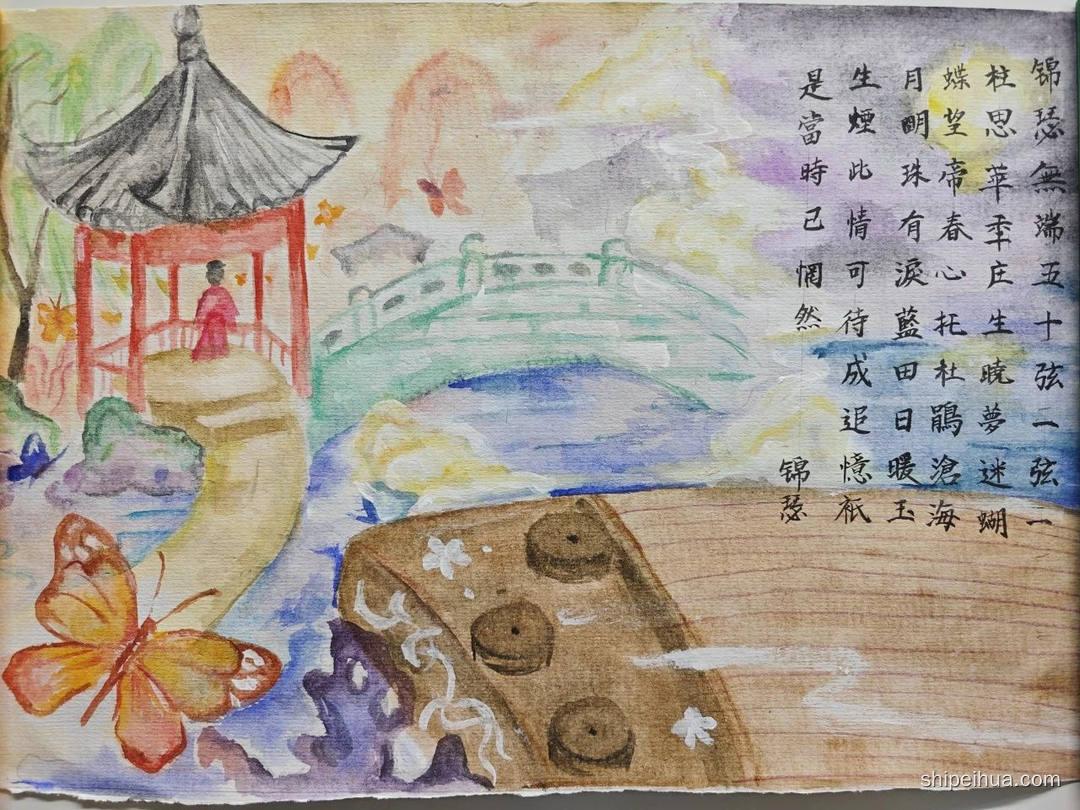 锦瑟無端五十弦一弦一
柱思華年庄生曉夢迷蝴
蝶望帝春心托杜鵑滄海
月明珠有淚藍田日暖玉
生煙此情可待成追憶衹
是當時已惘然
锦瑟
shipeihua.com